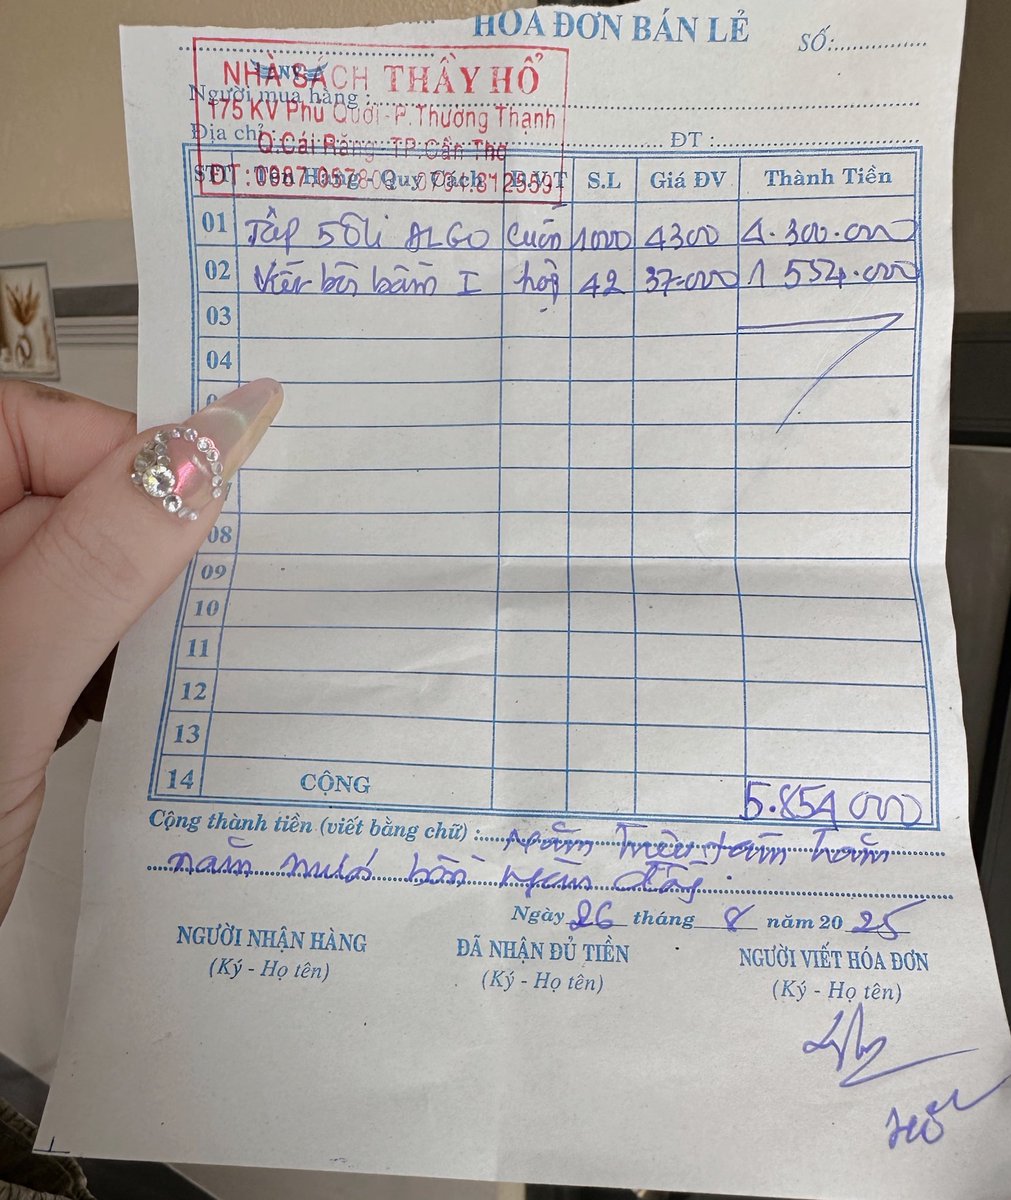 HÓA ĐƠN BÁN LẺ
SỐ:
NHÀ SÁCH THẦY HỔ
Người mua hàng :
175 KV Phú Quới-P.Thường Thạnh
Địa chỉ : ĐT :
Q.Cái Răng-TP.Cần Thơ
STT Tên Hàng Quy Cách Đ.V.T S.L Giá ĐV Thành Tiền
01 Tập ALGO cuốn 1000 4300 4.300.000
02 Viết bi bấm hộp 42 37.000 1 554.000
03
04
08
09
10
11
12
13
14 CỘNG 5.854 000
Cộng thành tiền (viết bằng chữ) : Năm triệu tám trăm
năm mươi bốn ngàn đồng.
Ngày 26 tháng 8 năm 20 25
NGƯỜI NHẬN HÀNG ĐÃ NHẬN ĐỦ TIỀN NGƯỜI VIẾT HÓA ĐƠN
(Ký - Họ tên) (Ký - Họ tên) (Ký - Họ tên)